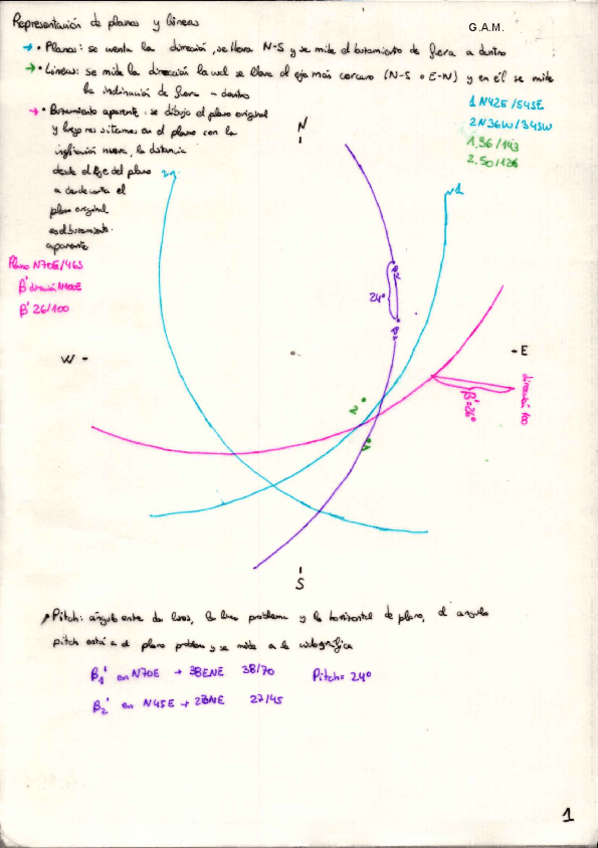 Representación de planos y líneas
G.A.M.
→ • Planos: se cuenta la dirección, se lleva N-S y se mide el buzamiento de fuera a dentro
→ • Líneas: se mide la dirección la cual se lleva al eje más cercano (N-S o E-W) y en él se mide
la inclinación de fuera - dentro
→ • Buzamiento aparente: se dibuja el plano original
y luego nos situamos en el plano con la
nueva, la distancia
desde el eje del plano
a donde corta el
plano original
es el buzamiento
aparente
1 N42E/54SE
2 N36W/34SW
1. 36/143
2. 50/126
Plano N70E/46S
β' dirección N100E
β' 26/100
N
24°
W
E
dirección 100
β'=26°
2
1
S
Pitch: ángulo entre dos líneas, la línea problema y la horizontal de plano, el ángulo
pitch está en el plano problema y se mide en la
β₁' en N70E → 38ENE 38/70 Pitch= 24°
β₂' en N45E → 27/45
1